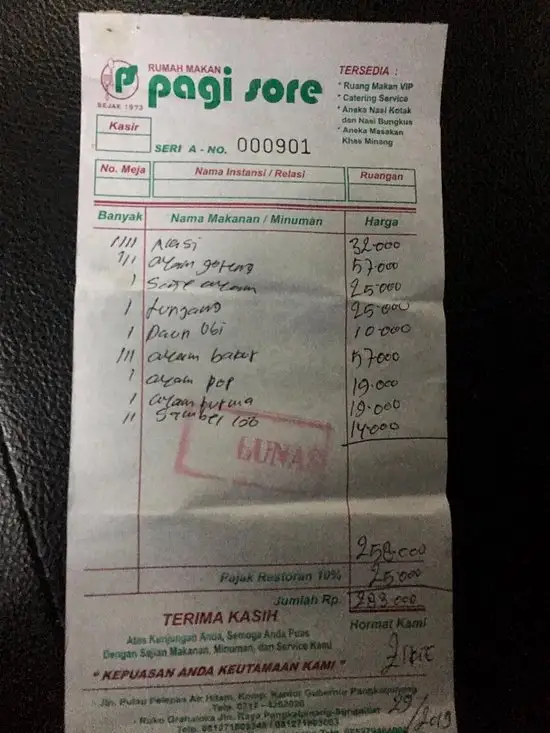 RUMAH MAKAN
pagi sore
SEJAK 1973
TERSEDIA :
* Ruang Makan VIP
* Catering Service
* Aneka Nasi Kotak
dan Nasi Bungkus
* Aneka Masakan
Khas Minang
Kasir
SERI A - NO. 000901
No. Meja Nama Instansi / Relasi Ruangan
Banyak Nama Makanan / Minuman Harga
IIII Nasi 32.000
III ayam goreng 57.000
I Sate ayam 25.000
I tunjang 25.000
I Daun Ubi 10.000
III ayam bakar 57.000
I ayam pop 19.000
I ayam kurma 19.000
II Sambel ijo 14.000
LUNAS
258.000
Pajak Restoran 10% 25.000
Jumlah Rp. 283.000
TERIMA KASIH
Atas Kunjungan Anda, Semoga Anda Puas
Dengan Sajian Makanan, Minuman, dan Service Kami
" KEPUASAN ANDA KEUTAMAAN KAMI "
Hormat Kami
- Jln. Pulau Pelepas Air Hitam, Komp. Kantor Gubernur Pangkalpinang
Telp. 0717 -
- Ruko Grahaloka Jln. Raya Pangkalpinang-Sungailiat
Telp.
29/
/2019